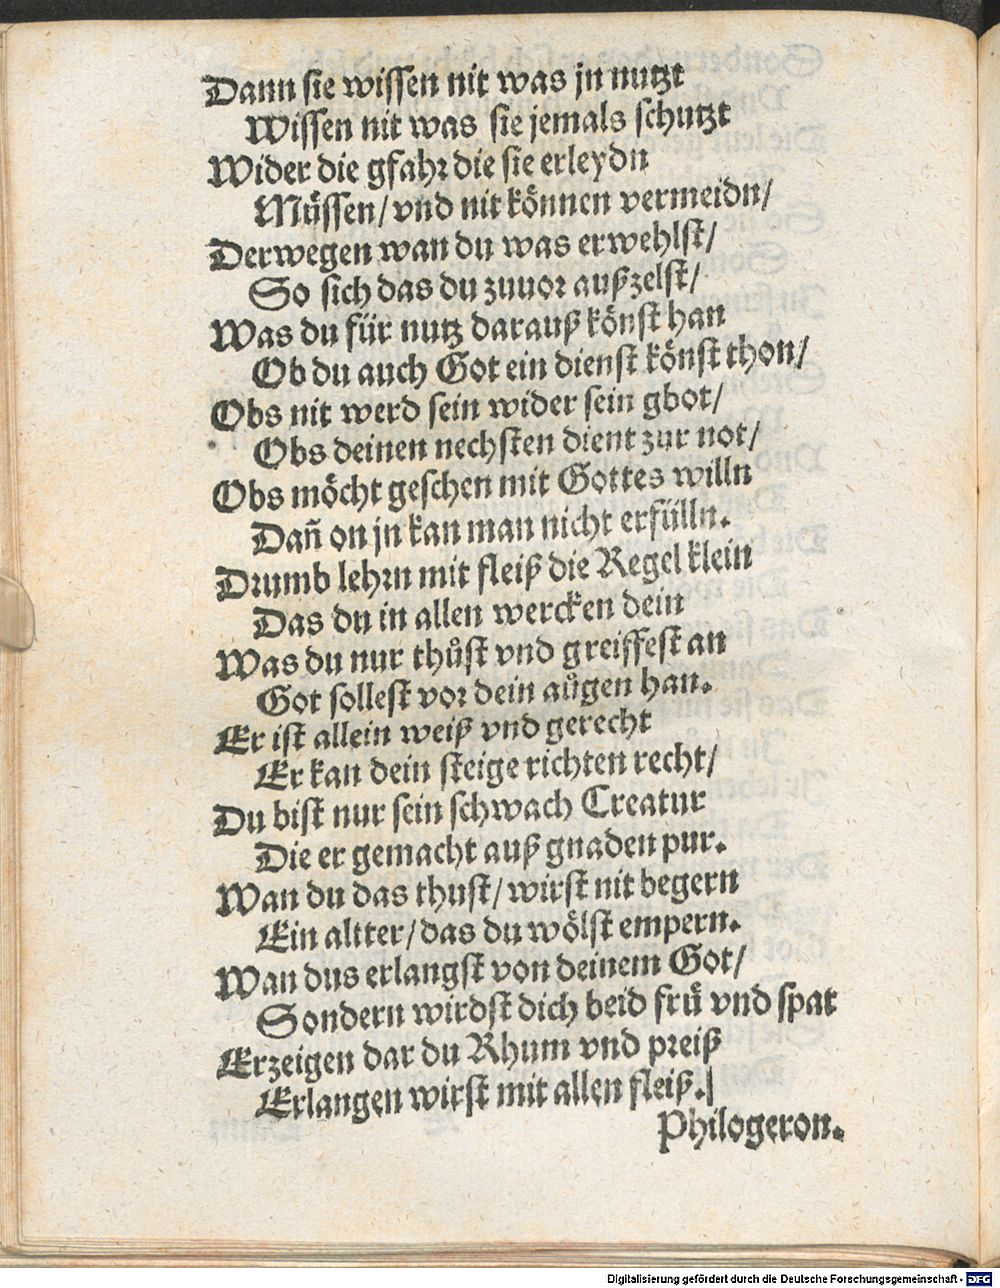 Dann sie wissen nit was jn nutzt
Wissen nit was sie jemals schutzt
Wider die gfahr die sie erleydn
Müssen/ vnd nit können vermeidn/
Derwegen wan du was erwehlst/
So sich das du zuuor außzelst/
Was du für nutz darauß könst han
Ob du auch Got ein dienst könst thon/
Obs nit werd sein wider sein gbot/
Obs deinen nechsten dient zur not/
Obs möcht geschen mit Gottes willn
Dañ on jn kan man nicht erfülln.
Drumb lehrn mit fleiß die Regel klein
Das du in allen wercken dein
Was du nur thůst vnd greiffest an
Got sollest vor dein aůgen han.
Er ist allein weiß vnd gerecht
Er kan dein steige richten recht/
Du bist nur sein schwach Creatur
Die er gemacht auß gnaden pur.
Wan du das thust/ wirst nit begern
Ein altter/ das du wölst empern.
Wan dus erlangst von deinem Got/
Sondern wirdst dich beid frü vnd spat
Erzeigen dar du Rhum vnd preiß
Erlangen wirst mit allen fleiß.
Philogeron.
Digitalisierung gefördert durch die Deutsche Forschungsgemeinschaft - DFG